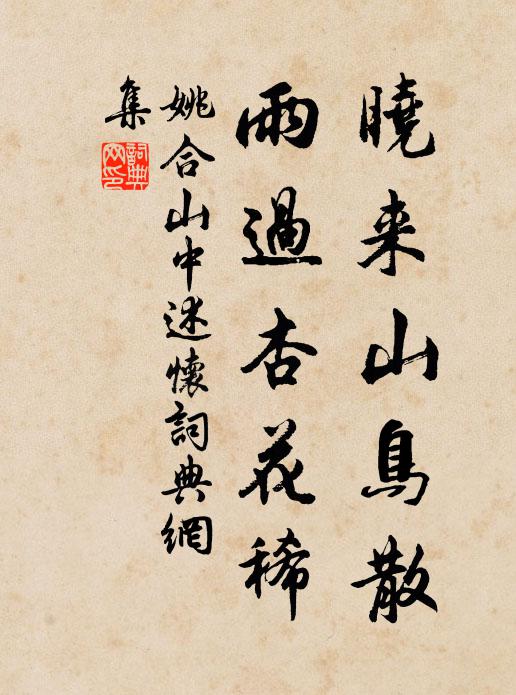 曉来山鳥散
雨過杏花稀
姚合山中述懷詞典網
集
詞典網印